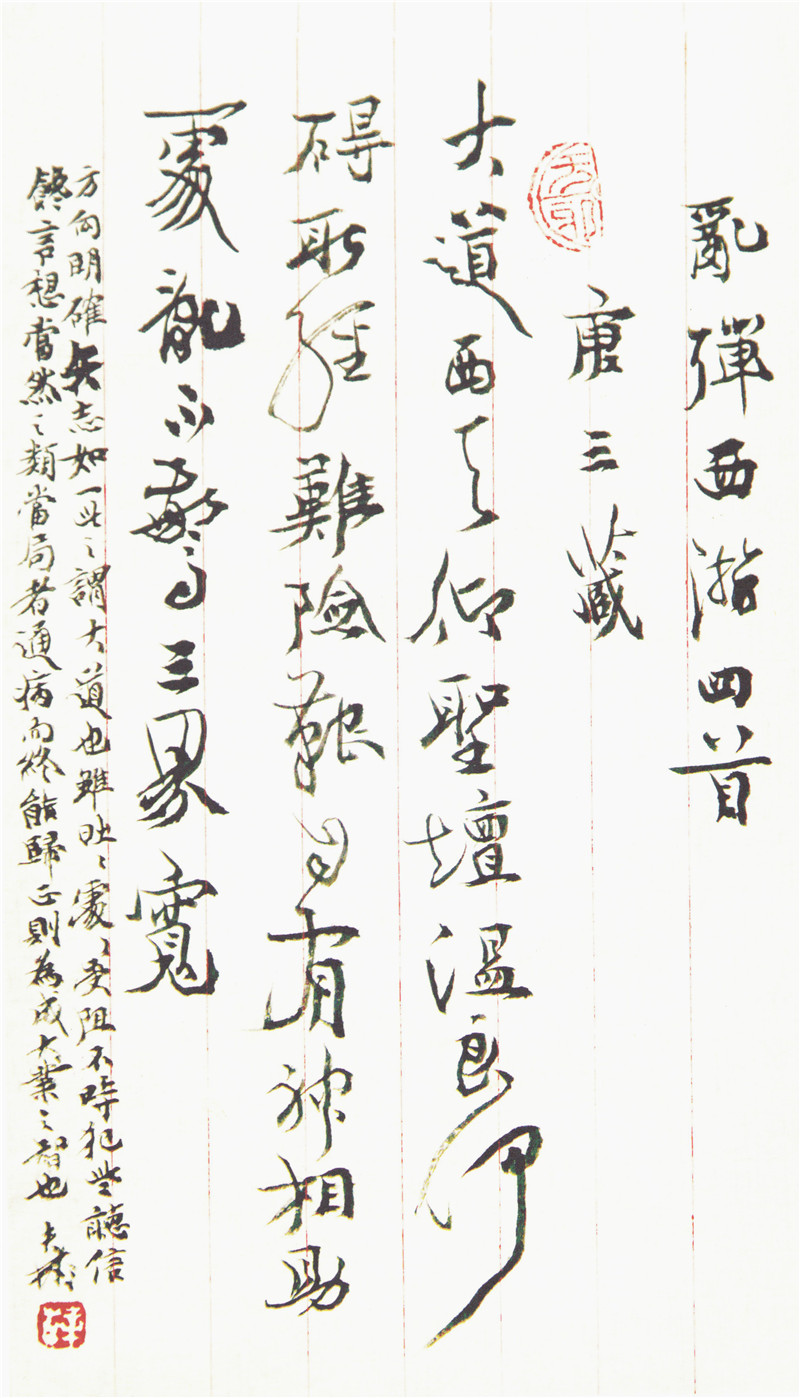 亂彈西游四首
唐三藏
大道西天仰聖壇溫良何
碍取經難險艱自有神相助
處亂不驚三界寬
方向明確矢志如一此之謂大道也雖處〻受阻不時犯些聽信
讒言想當然之類當局者通病而終能歸正則為成大業之智也